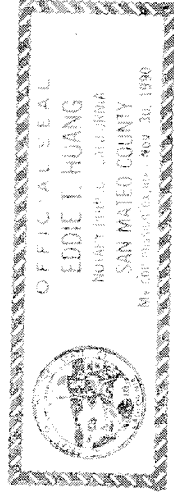 OFFICIAL SEAL
EDDIE T. HUANG
NOTARY PUBLIC - CALIFORNIA
SAN MATEO COUNTY
My Commission Expires Nov. 20, 1990